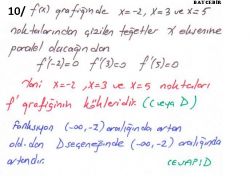 BAYÇEBİR
10/ f'(x) grafiğinde x=-2, x=3 ve x=5
noktalarından çizilen teğetler x eksenine
paralel olacağından
f'(-2)=0 f'(3)=0 f'(5)=0
Yani x=-2, x=3 ve x=5 noktaları
f' grafiğinin kökleridir. (C veya D)
Fonksiyon (-∞,-2) aralığında artan
old.dan D seçeneğinde (-∞,-2) aralığında
artandır. CEVAP: D